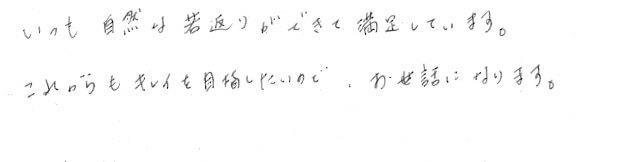 いつも 自然な若返りができて満足しています。
これからもキレイを目指したいので、お世話になります。